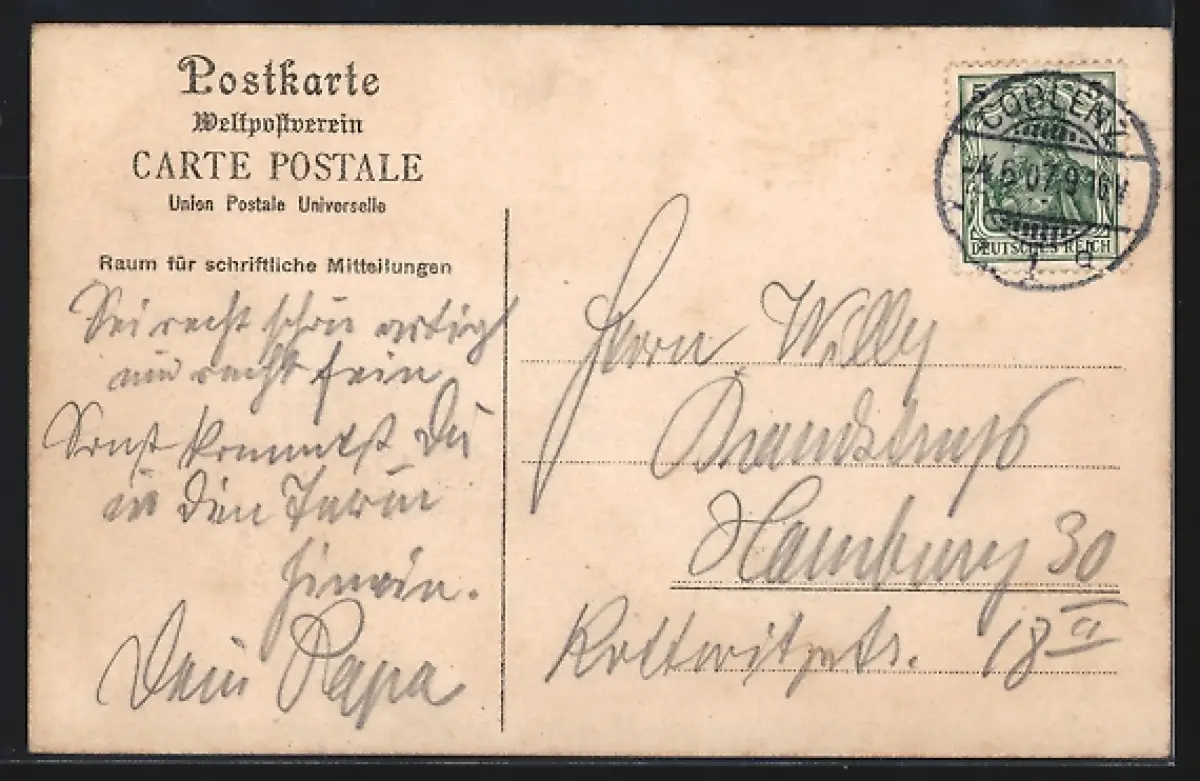 Postkarte
Weltpostverein
CARTE POSTALE
Union Postale Universelle
Raum für schriftliche Mitteilungen
Sei recht schön artig
und recht fein
Sonst kommst Du
in den Turm
hinein.
Dein Papa
5
COBLENZ
4.6.07.9
DEUTSCHES REICH
Herrn Willy
Hamburg 30
18 II